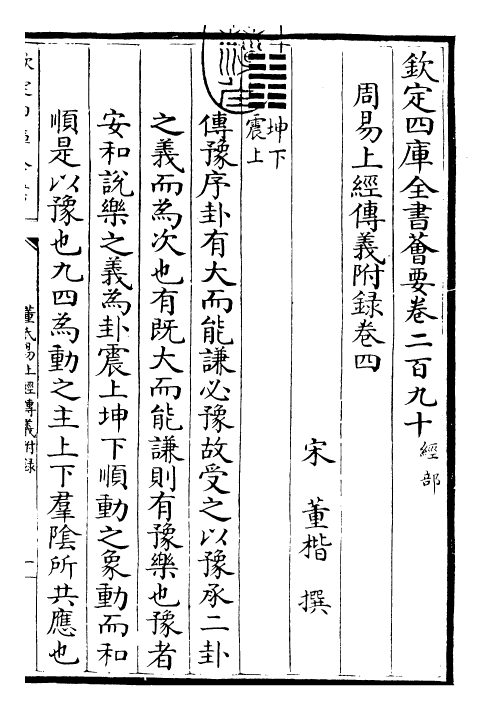 欽定四庫全書薈要卷二百九十
經部
周易上經傳義附録卷四
宋 董楷 撰
坤下
震上
傳豫序卦有大而能謙必豫故受之以豫承二卦
之義而為次也有既大而能謙則有豫樂也豫者
安和說樂之義為卦震上坤下順動之象動而和
順是以豫也九四為動之主上下羣陰所共應也
董氏易上經傳義附録
一